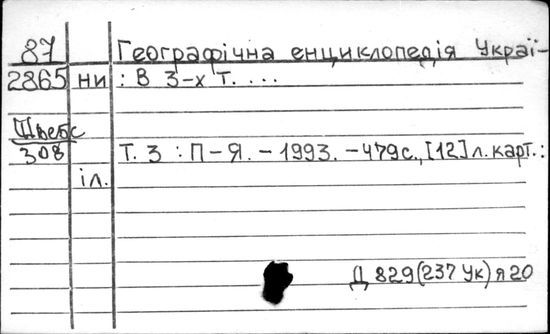 87 Географічна енциклопедія Украї-
2865 ни : В 3-х т. ...
Швебс
308 Т. 3 : П-Я. - 1993. - 479 с., [12] л. карт. :
іл.
Д 829(237 Ук) я 20